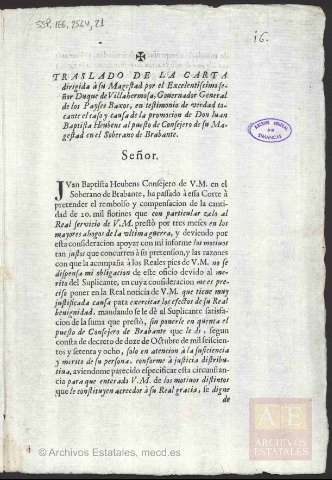 SSP, 166, 2564, 21
16.
TRASLADO DE LA CARTA
dirigida à su Magestad por el Excelentissimo se-
ñor Duque de Villahermosa, Governador General
de los Payses Baxos, en testimonio de verdad to-
cante el caso y causa de la promocion de Don Iuan
Baptista Heubens al puesto de Consejero de su Ma-
gestad en el Soberano de Brabante.
Señor.
JVan Baptista Heubens Consejero de V.M. en el
Soberano de Brabante, ha passado à essa Corte à
pretender el rembolso y compensacion de la canti-
dad de 20. mil florines que con particular zelo al
Real servicio de V.M. prestò por tres meses en los
mayores ahogos de la ultima guerra, y deviendo por
esta consideracion apoyar con mi informe los motivos
tan justos que concurren à su pretension, y las razones
con que la acompaña à los Reales pies de V.M. no se
dispensa mi obligacion de este oficio devido al me-
rito del Suplicante, en cuya consideracion me es preci-
so poner en la Real noticia de V.M. que tiene muy
justificada causa para exercitar los efectos de su Real
benignidad, mandando se le dè al Suplicante satisfa-
cion de la suma que prestò, sin ponerle en quenta el
puesto de Consejero de Brabante que le dì, segun
consta de decreto de doze de Octubre de mil seiscien-
tos y setenta y ocho, solo en atencion à la suficiencia
y merito de su persona, conforme à justicia distribu-
tiva, aviendome parecido especificar esta circunstan-
cia para que enterado V.M. de los motivos distintos
que le constituyen acreedor à su Real gracia, le digne
de
ARCHIVO GENERAL
DE
SIMANCAS
AE
ARCHIVOS
ESTATALES
© Archivos Estatales, mecd.es